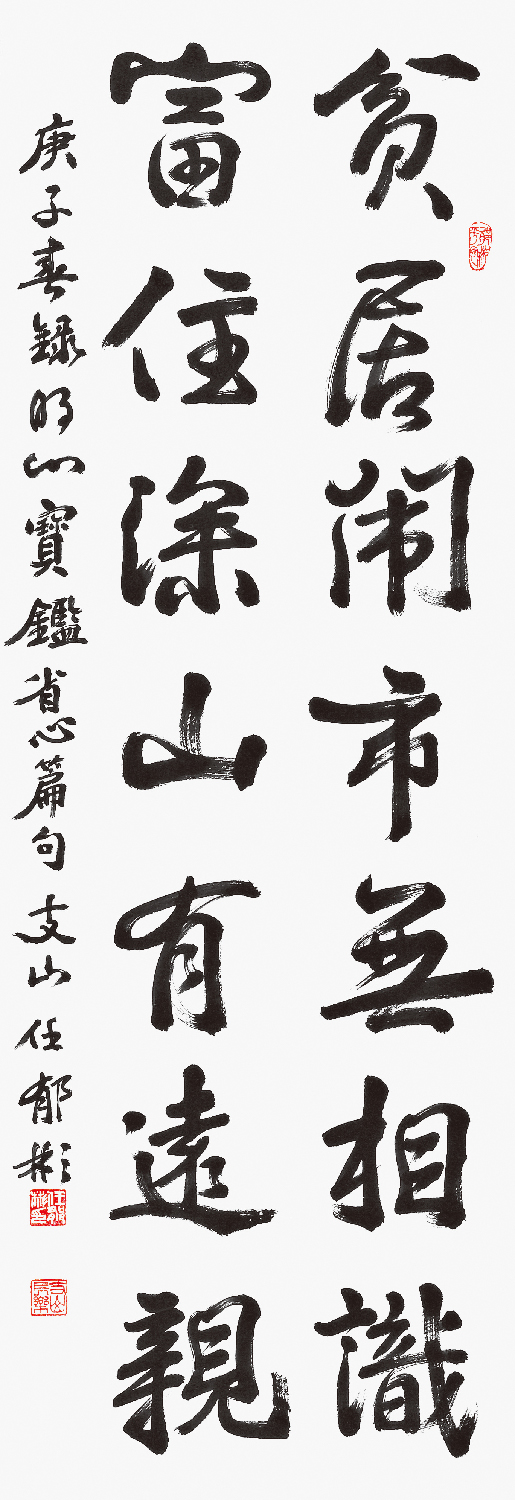 貧居闹市無相識
富住深山有遠親
庚子春録明心寶鑑省心篇句 支山任郁彬